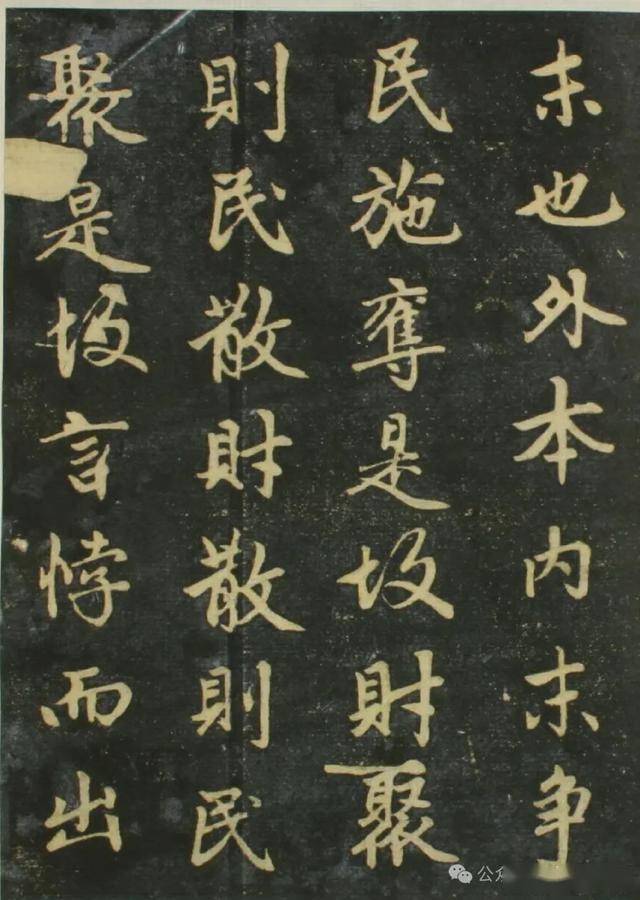 末也外本内末争
民施奪是故財聚
則民散財散則民
聚是故言悖而出
公众